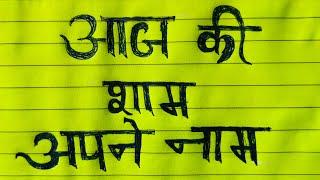 आज की
शाम
अपने नाम